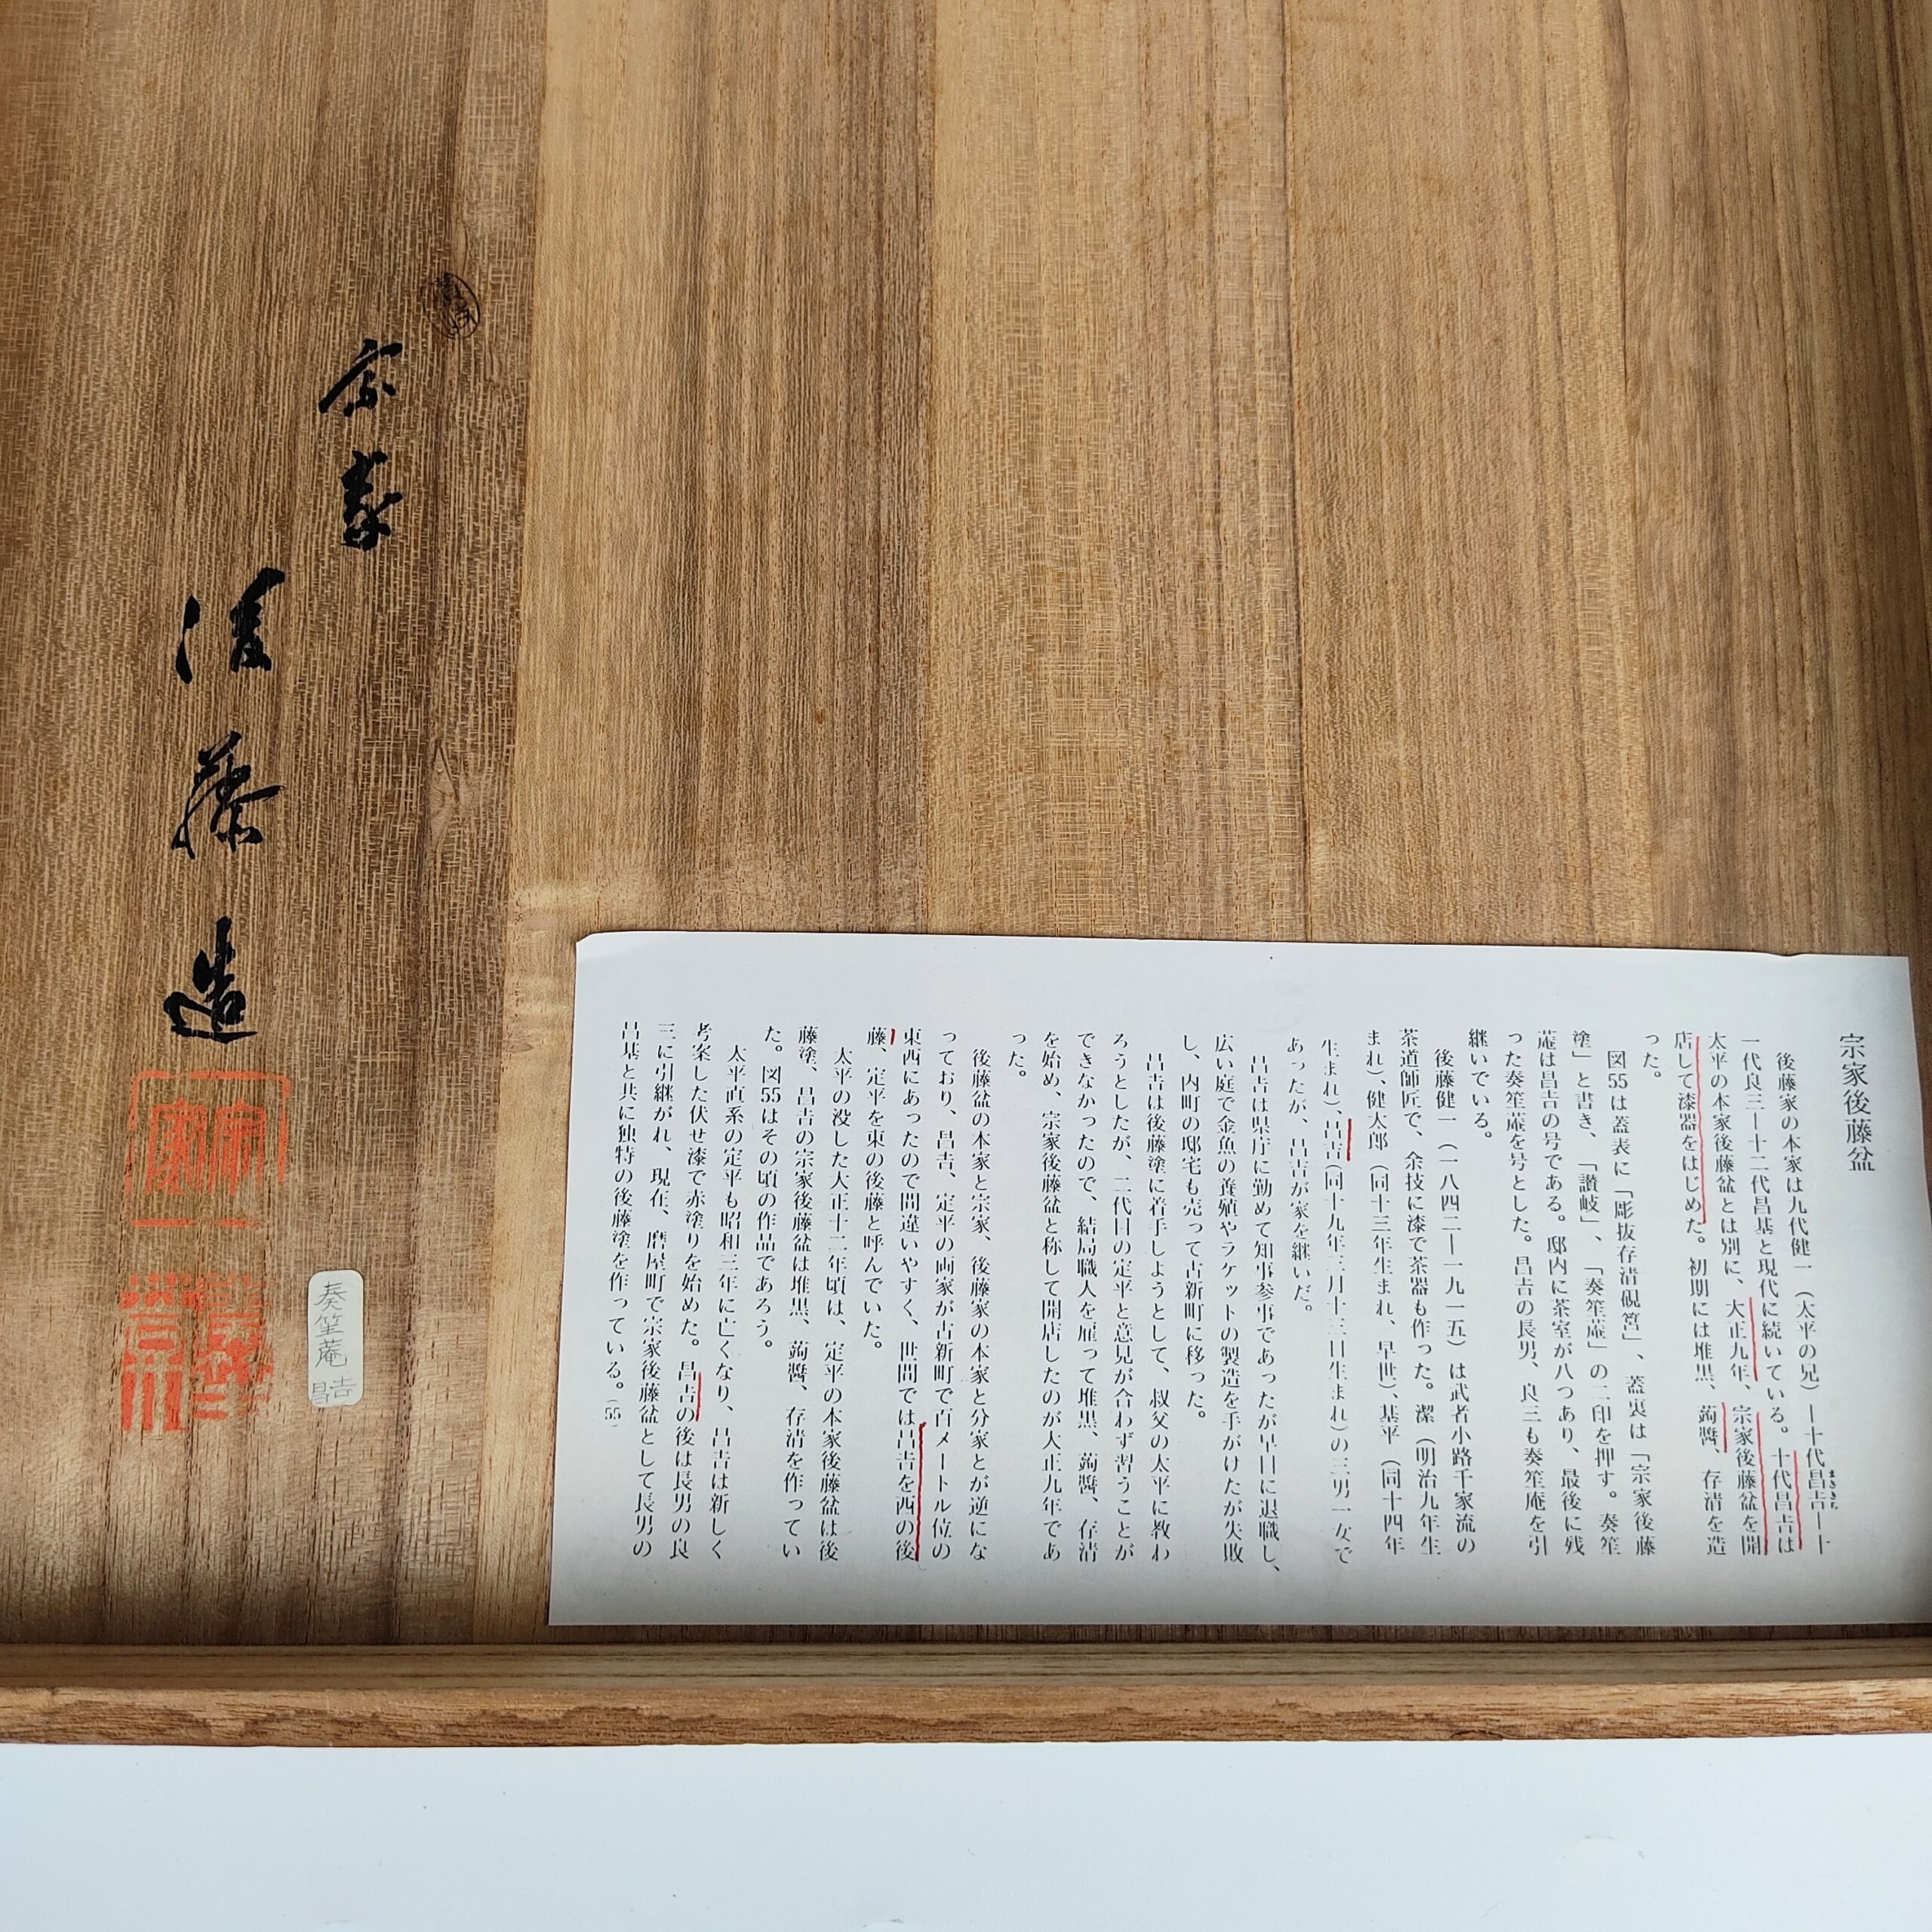 宗家後藤盆
後藤家の本家は九代健一（太平の兄）―十代昌吉―十
まさきち
一代良三―十二代昌基と現代に続いている。十代昌吉は
太平の本家後藤盆とは別に、大正九年、宗家後藤盆を開
店して漆器をはじめた。初期には堆黒、蒟醬、存清を造
った。
図55は蓋表に「彫抜存清硯筥」、蓋裏は「宗家後藤
塗」と書き、「讃岐」、「奏笙菴」の二印を押す。奏笙
菴は昌吉の号である。邸内に茶室が八つあり、最後に残
った奏笙菴を号とした。昌吉の長男、良三も奏笙菴を引
継いでいる。
後藤健一（一八四二―一九一五）は武者小路千家流の
茶道師匠で、余技に漆で茶器も作った。潔（明治九年生
まれ）、健太郎（同十三年生まれ、早世）、基平（同十四年
生まれ）、昌吉（同十九年三月十三日生まれ）の三男一女で
あったが、昌吉が家を継いだ。
昌吉は県庁に勤めて知事参事であったが早目に退職し、
広い庭で金魚の養殖やラケットの製造を手がけたが失敗
し、内町の邸宅も売って古新町に移った。
昌吉は後藤塗に着手しようとして、叔父の太平に教わ
ろうとしたが、二代目の定平と意見が合わず習うことが
できなかったので、結局職人を雇って堆黒、蒟醬、存清
を始め、宗家後藤盆と称して開店したのが大正九年であ
った。
後藤盆の本家と宗家、後藤家の本家と分家とが逆にな
っており、昌吉、定平の両家が古新町で百メートル位の
東西にあったので間違いやすく、世間では昌吉を西の後
藤、定平を東の後藤と呼んでいた。
太平の没した大正十二年頃は、定平の本家後藤盆は後
藤塗、昌吉の宗家後藤盆は堆黒、蒟醬、存清を作ってい
た。図55はその頃の作品であろう。
太平直系の定平も昭和三年に亡くなり、昌吉は新しく
考案した伏せ漆で赤塗りを始めた。昌吉の後は長男の良
三に引継がれ、現在、磨屋町で宗家後藤盆として長男の
昌基と共に独特の後藤塗を作っている。（55）
宗家
後藤造
宗家
奏笙菴 昌吉